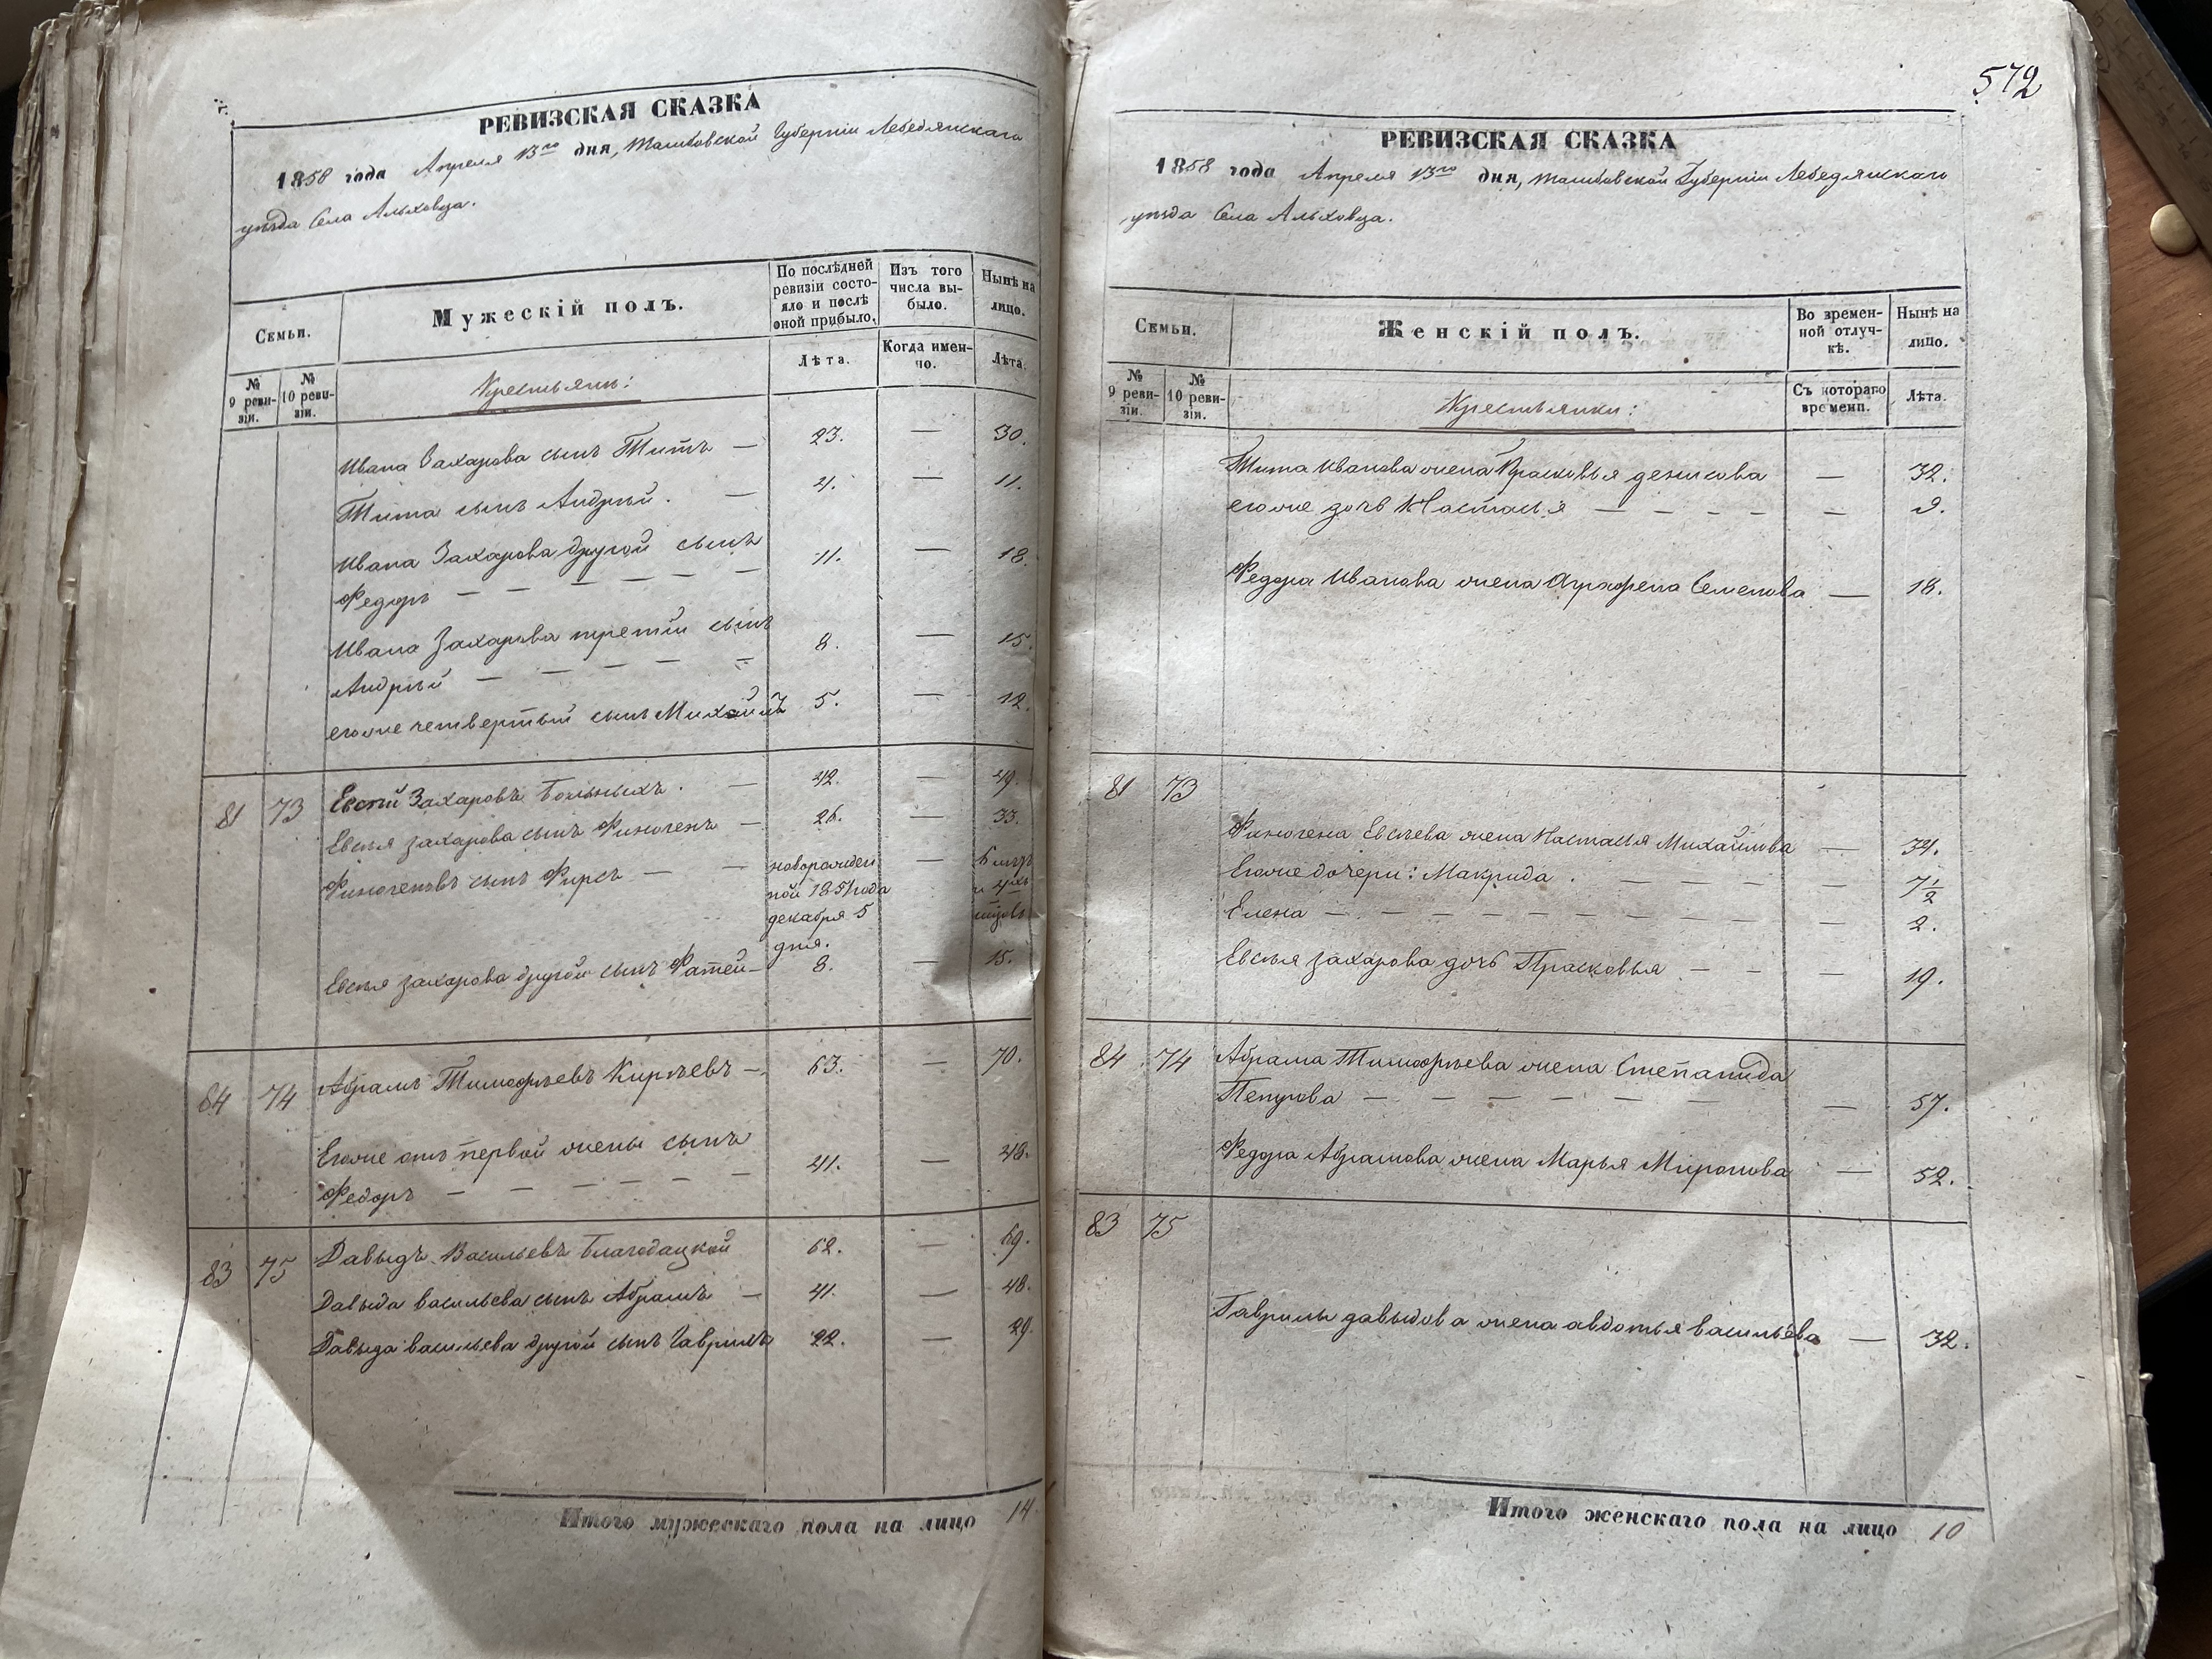 РЕВИЗСКАЯ СКАЗКА
1858 года Апреля 13го дня, Тамбовской Губернии Лебедянскаго
уѣзда Села Альховца.
Семьи.
Мужескій полъ.
По послѣдней ревизіи состояло и послѣ оной прибыло.
Изъ того числа выбыло.
Нынѣ на лицо.
№ 9 ревизіи.
№ 10 ревизіи.
Крестьяне:
Лѣта.
Когда именно.
Лѣта.
Ивана Захарова сынъ Титъ — 23. — 30.
Тита сынъ Андрѣй. — 4. — 11.
Ивана Захарова другой сынъ 11. — 18.
Федоръ — — — — — —
Ивана Захарова третій сынъ 8. — 15.
Андрѣй — — — — —
егоже четвертый сынъ Михайлъ 5. — 12.
81 73 Евсѣй Захаровъ Больныхъ. — 42. — 49.
Евсѣя Захарова сынъ Финогенъ — 26. — 33.
Финогеновъ сынъ Фирсъ — — новорожден — 6 лѣтъ
ной 1851 года и 4 мѣсяцовъ
декабря 5
дня.
Евсѣя Захарова другой сынъ Фатей — 8. — 15.
84 74 Абрамъ Тимофѣевъ Кирѣевъ — 63. — 70.
Егоже отъ первой жены сынъ
Федоръ — — — — — — 41. — 48.
83 75 Давыдъ Васильевъ Благодацкой 62. — 69.
Давыда васильева сынъ Абрамъ — 41. — 48.
Давыда васильева другой сынъ Гаврилъ 22. — 29.
Итого мужескаго пола на лицо 14.
572
РЕВИЗСКАЯ СКАЗКА
1858 года Апреля 13го дня, Тамбовской Губерніи Лебедянскаго
уѣзда Села Альховца.
Семьи.
Женскій полъ.
Во временной отлучкѣ.
Нынѣ на лицо.
№ 9 ревизіи.
№ 10 ревизіи.
Крестьянки:
Съ котораго времени.
Лѣта.
Тита Иванова жена Прасковья денисова — 32.
егоже дочь Настасья — — — — — 9.
Федора Иванова жена Аграфена Семенова — 18.
81 73
Финогена Евсѣева жена Настасья Михайлова — 34.
Егоже дочери: Макрида. — — — — — 7½
Елена — — — — — — — — — 2.
Евсѣя Захарова дочь Прасковья — — — 19.
84 74 Абрама Тимофѣева жена Степанида
Петрова — — — — — — — 57.
Федора Абрамова жена Марья Миронова — 52.
83 75
Гаврилы давыдова жена авдотья васильева — 32.
Итого женскаго пола на лицо 10